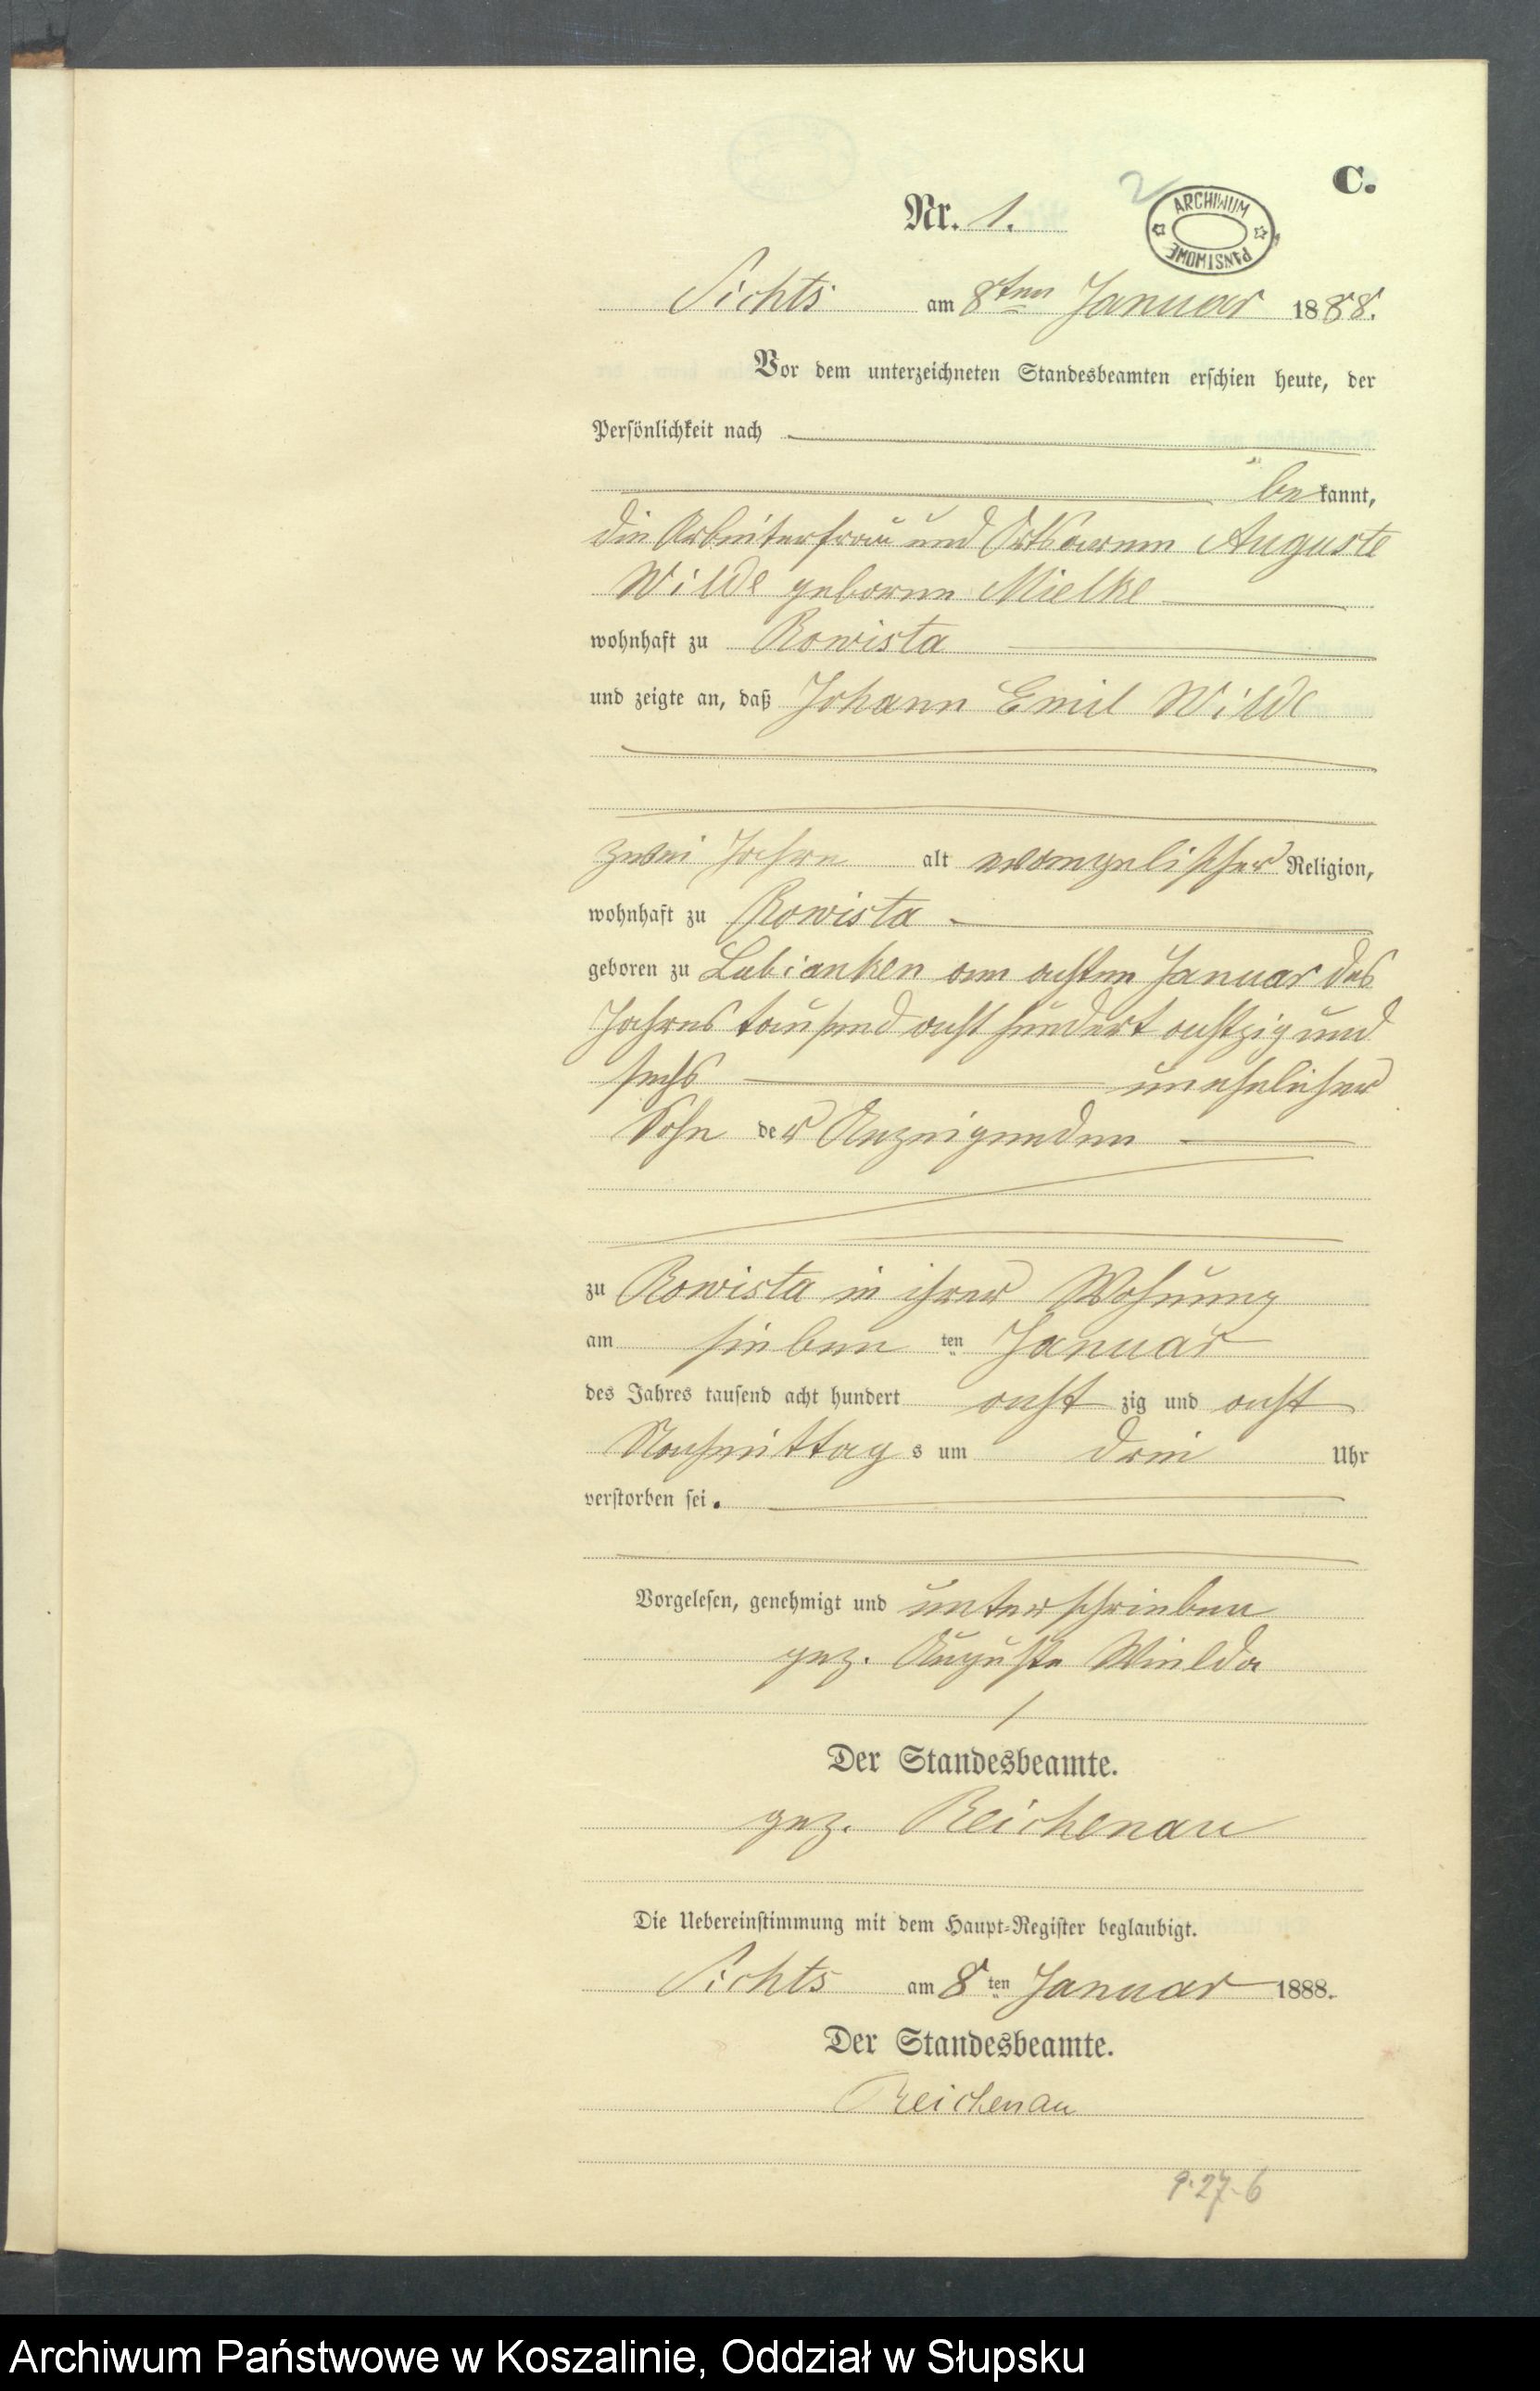 C.
2
Nr. 1.
ARCHIWUM PAŃSTWOWE
Sichts am 8ten Januar 1888.
Vor dem unterzeichneten Standesbeamten erschien heute, der
Persönlichkeit nach
bekannt,
die Arbeiterfrau und Ortsarme Auguste
Wilde geborene Mielke
wohnhaft zu Rowista
und zeigte an, daß Johann Emil Wilde
zwei Jahre alt evangelischer Religion,
wohnhaft zu Rowista
geboren zu Lubianken am achten Januar des
Jahres tausend acht hundert achtzig und
sechs unehelicher
Sohn der Anzeigenden
zu Rowista in ihrer Wohnung
am sieben ten Januar
des Jahres tausend acht hundert acht zig und acht
Nachmittag s um drei Uhr
verstorben sei.
Vorgelesen, genehmigt und unterschrieben
gez. Auguste Wielda
Der Standesbeamte.
gez. Reichenau
Die Uebereinstimmung mit dem Haupt-Register beglaubigt.
Sichts am 8 ten Januar 1888.
Der Standesbeamte.
Reichenau
9.27-6
Archiwum Państwowe w Koszalinie, Oddział w Słupsku